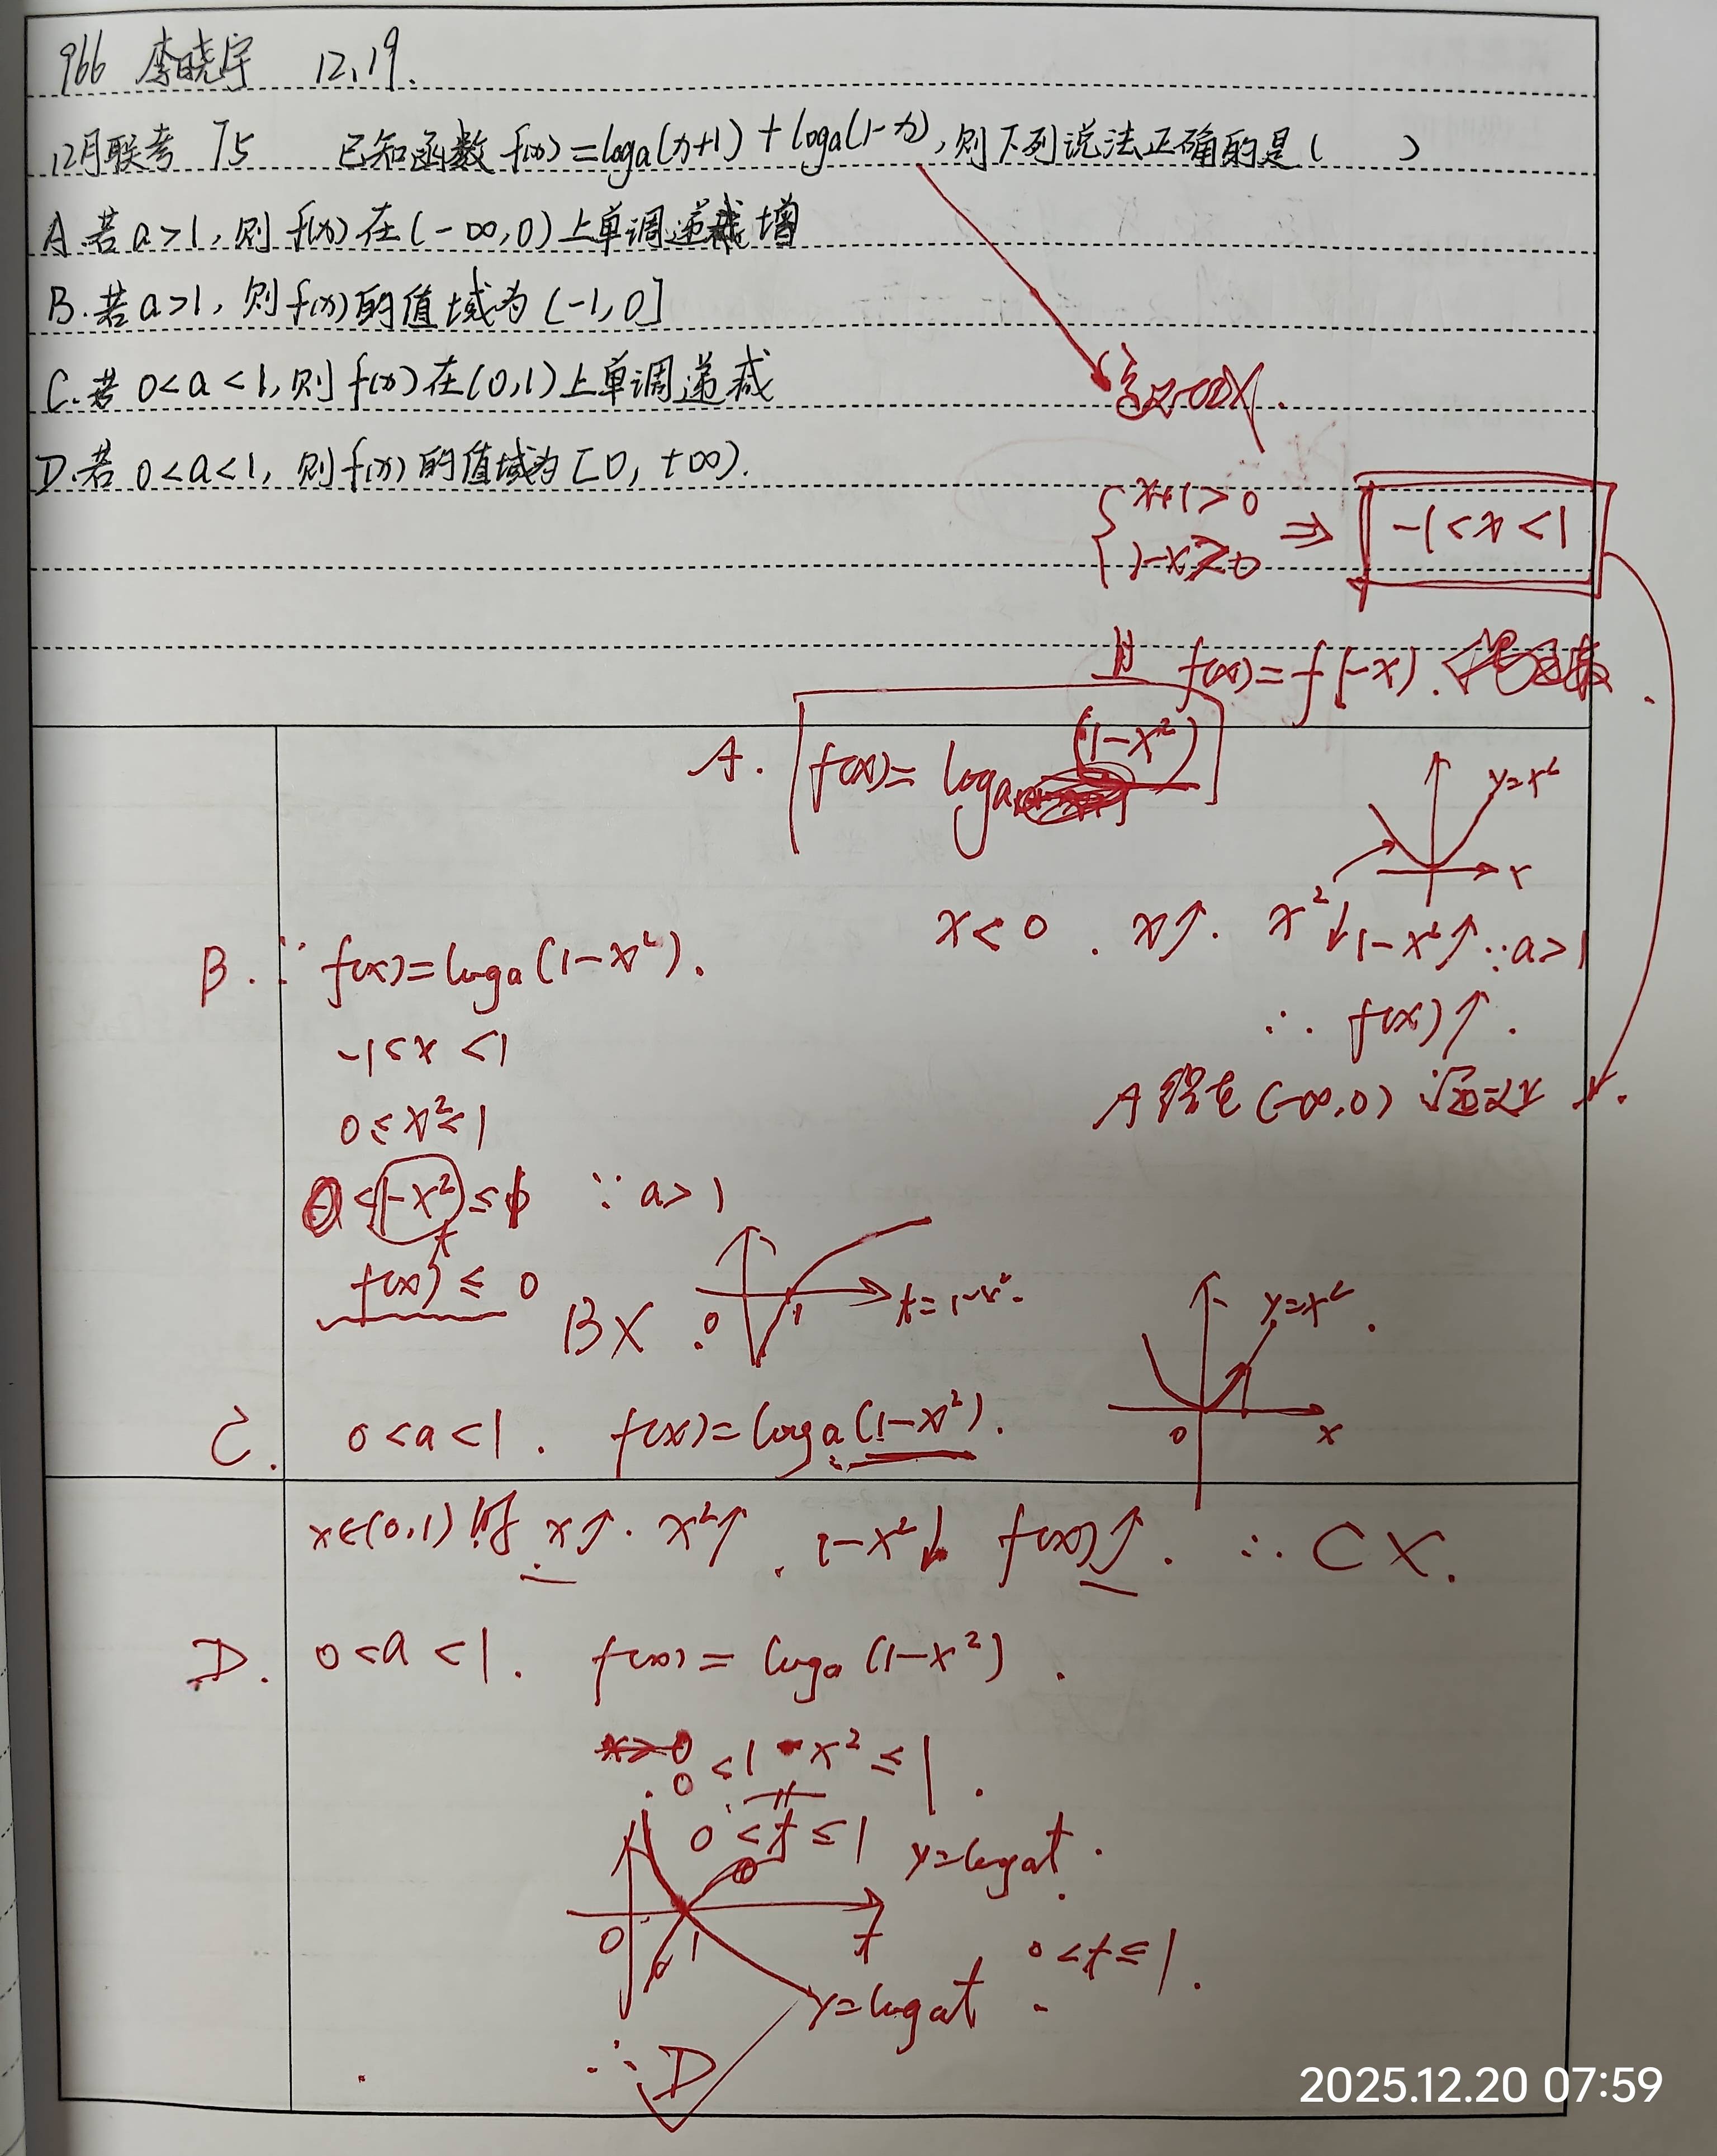 966 李晓宇 12.19.
12月联考 T5 已知函数 f(x)=loga(x+1)+loga(1-x),则下列说法正确的是( )
A.若a>1,则f(x)在(-∞,0)上单调递增
B.若a>1,则f(x)的值域为(-1,0]
C.若0<a<1,则f(x)在(0,1)上单调递减
D.若0<a<1,则f(x)的值域为[0,+∞).
{x+1>0
1-x>0 ⇒ -1<x<1
且 f(x)=f(-x).
A. f(x)=loga(1-x²)
y=x²
x
x<0. x↑. x²↓ 1-x²↑ ∵a>1
∴ f(x)↑.
A 错在(-∞,0)
B. ∵ f(x)=loga(1-x²).
-1<x<1
0≤x²<1
0<1-x²≤1 ∵a>1
t
f(x)≤0
B×
0 1 t=1-x².
y=x².
0 x
C. 0<a<1. f(x)=loga(1-x²).
x∈(0,1)时 x↑. x²↑. 1-x²↓ f(x)↑. ∴ C×.
D. 0<a<1. f(x)=loga(1-x²).
0<1-x²≤1.
0<t≤1 y=logat.
0 1 t
0<t≤1.
y=logat
∴ D
2025.12.20 07:59